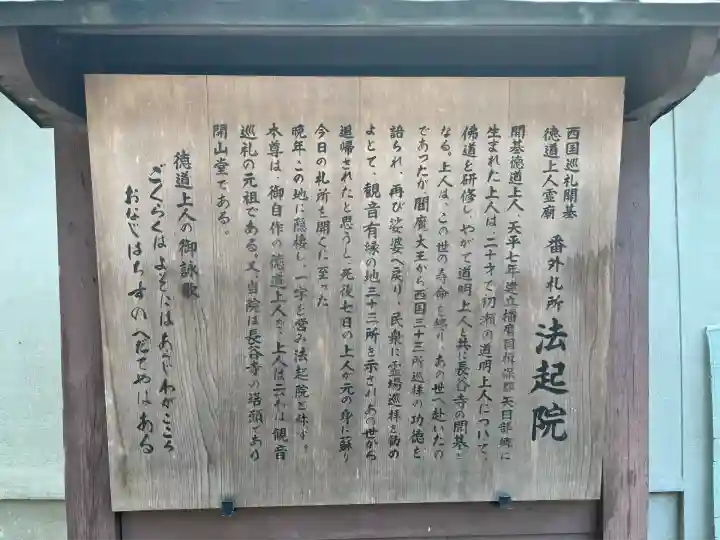 西国巡礼開基
徳道上人霊廟 番外札所 法起院
開基徳道上人、天平七年建立播磨国揖保郡矢田部郷に
生まれた上人は、二十才で初瀬の道明上人について、
佛道を研修し、やがて道明上人と共に長谷寺の開基と
なる。上人は、この世の寿命を終り、あの世へ赴いたの
であったが、閻魔大王から西国三十三所巡拝の功徳を
語られ、再び娑婆へ戻り、民衆に霊場巡拝を勧め
よとて、観音有縁の地三十三所を示されあの世から
追帰されたと思うし、死後七日の上人が元の身に蘇り
今日の札所を開くに至った
晩年、この地に隠棲し、一宇を営み法起院と称す。
本尊は、御自作の徳道上人で、上人は云わば観音
巡礼の元祖である。又、当院は長谷寺の塔頭であり
開山堂である。
徳道上人の御詠歌
ごくらくは よそにはあらじ わがこころ
おなじはちすの へだてやはある